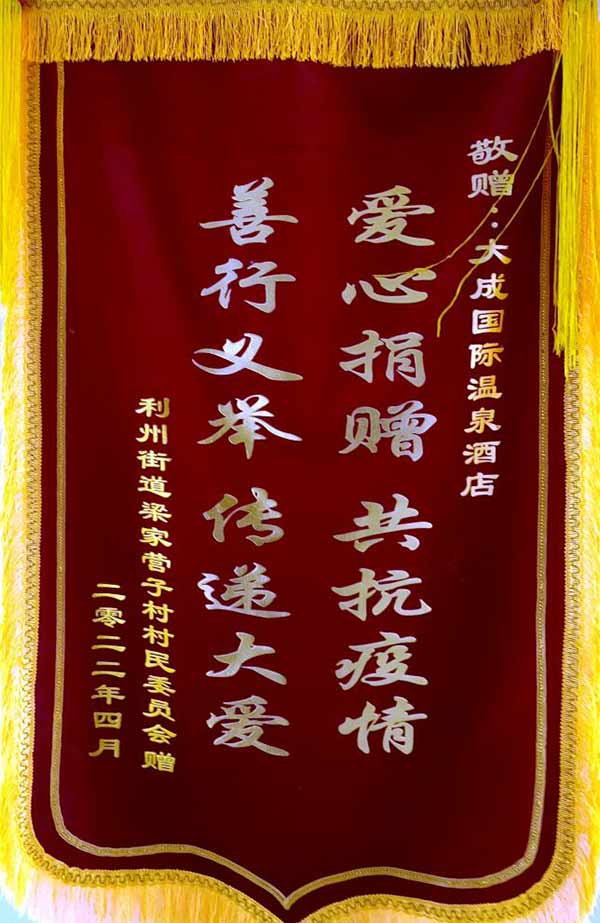 敬赠：大成国际温泉酒店
爱心捐赠 共抗疫情
善行义举 传递大爱
利州街道梁家营子村村民委员会赠
二零二二年四月